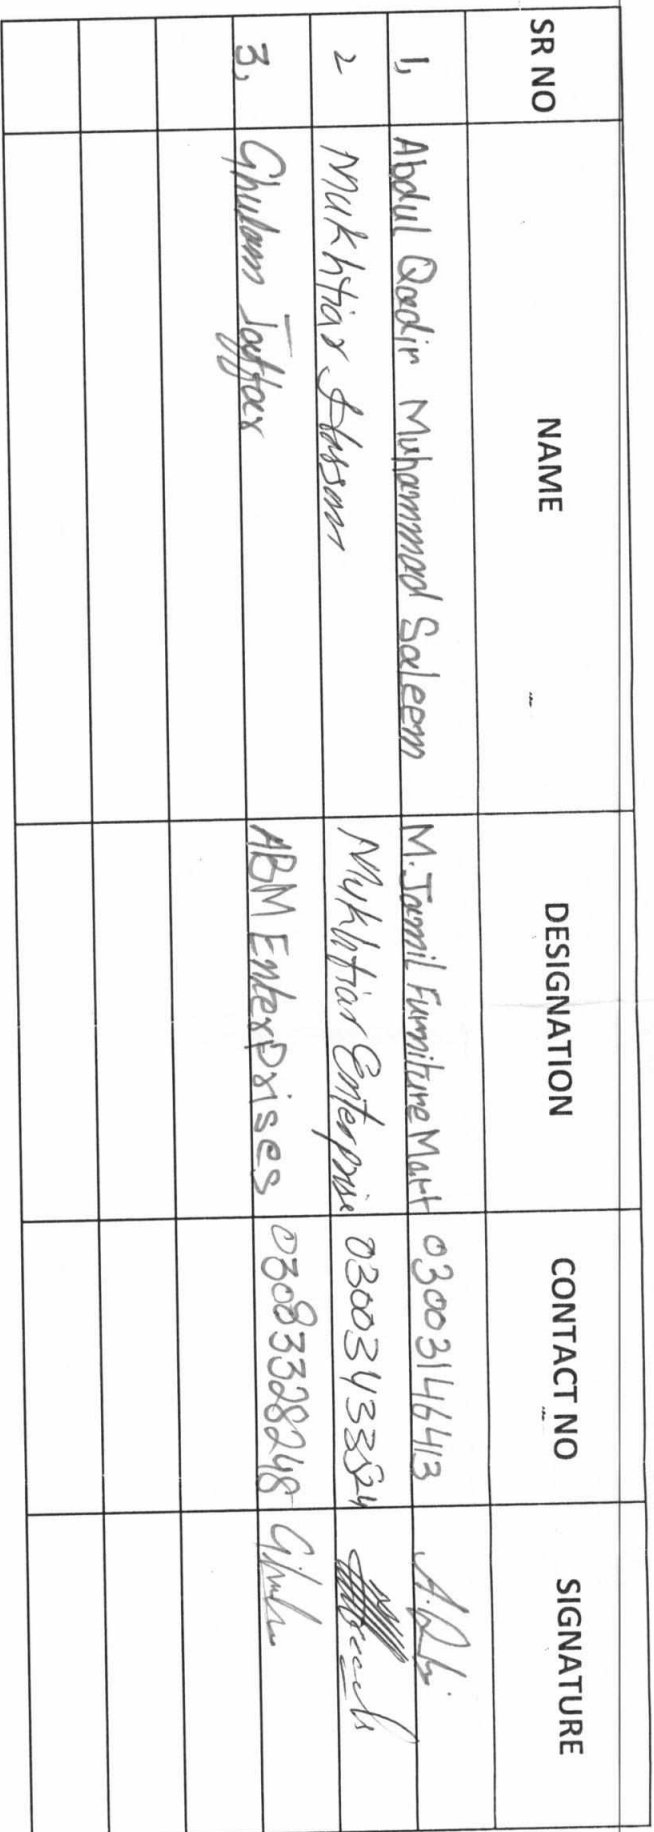 SR NO NAME DESIGNATION CONTACT NO SIGNATURE
1, Abdul Qadir Muhammad Saleem M. Jamil Furniture Mart 03003146413
2 Mukhtiar Hassan Mukhtiar Enterprise 03003433824
3, Ghulam Jaffar ABM Enterprises 03083328248